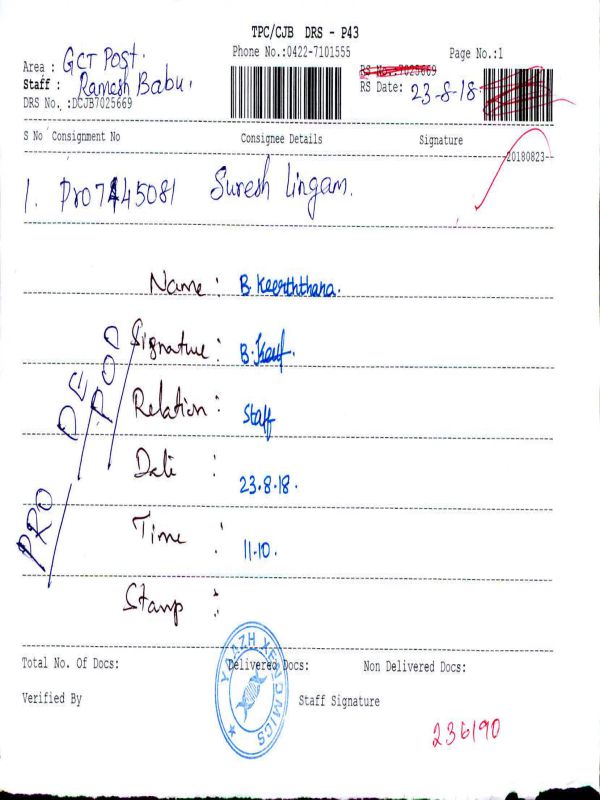 TPC/CJB DRS - P43
Phone No.:0422-7101555
Page No.:1
Area : GCT Post.
RS No.:7025669
Staff : Ramesh Babu.
RS Date: 23-8-18.
DRS No. :DCJB7025669
S No Consignment No Consignee Details Signature
20180823
1. Pro7445081 Suresh Lingam.
Name : B. Keerththana.
Signature : B.
Relation : Staff
Date : 23.8.18.
Time : 11.10.
Stamp :
PRO DE POD
YAAZH XENOMICS
Total No. Of Docs: Delivered Docs: Non Delivered Docs:
Verified By Staff Signature
236190